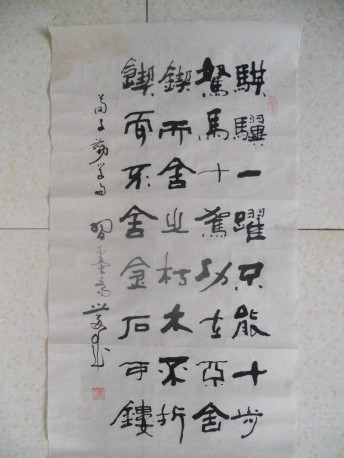 騏驥一躍不能十步
駑馬十駕功在不舍
鍥而舍之朽木不折
鍥而不舍金石可鏤
荀子勸學句